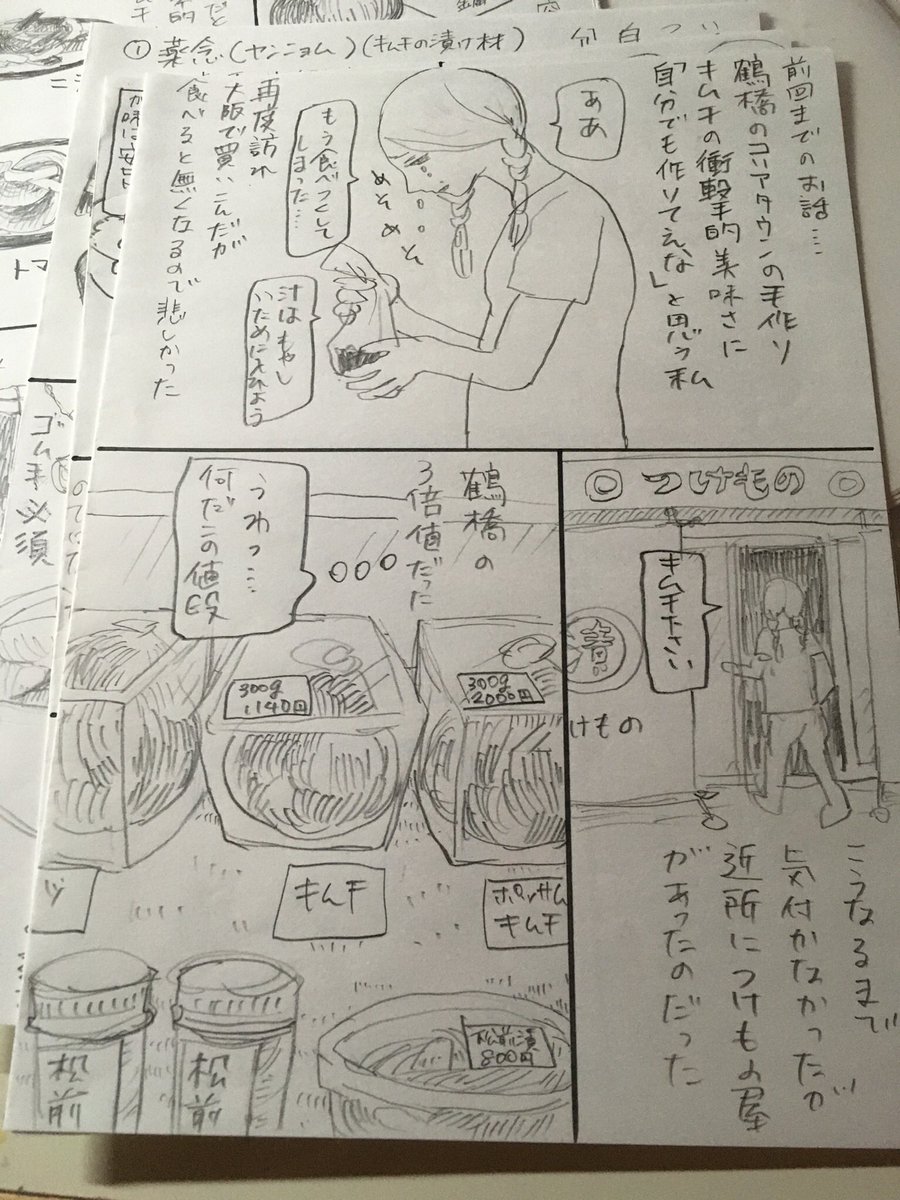 ① 薬念(ヤンニョム)(キムチの漬け材)
前回までのお話…
鶴橋のコリアタウンの手作り
キムチの衝撃的美味さに
「自分でも作りてえな」と思う私
ああ
めそめそ
もう食べつくして
しまった…
汁はもやし
いためにそえよう
再度訪れ
大阪で買いこんだが
食べると無くなるので悲しかった
つけもの
キムチ下さい
けもの
こうなるまで
気付かなかったが
近所につけもの屋
があったのだった
鶴橋の
3倍値だった
うわっ…
何だこの値段
300g
1140円
300g
2000円
ツ
キムチ
ポッサム
キムチ
松前
松前
松前漬
800円
ゴム手必須
トマ